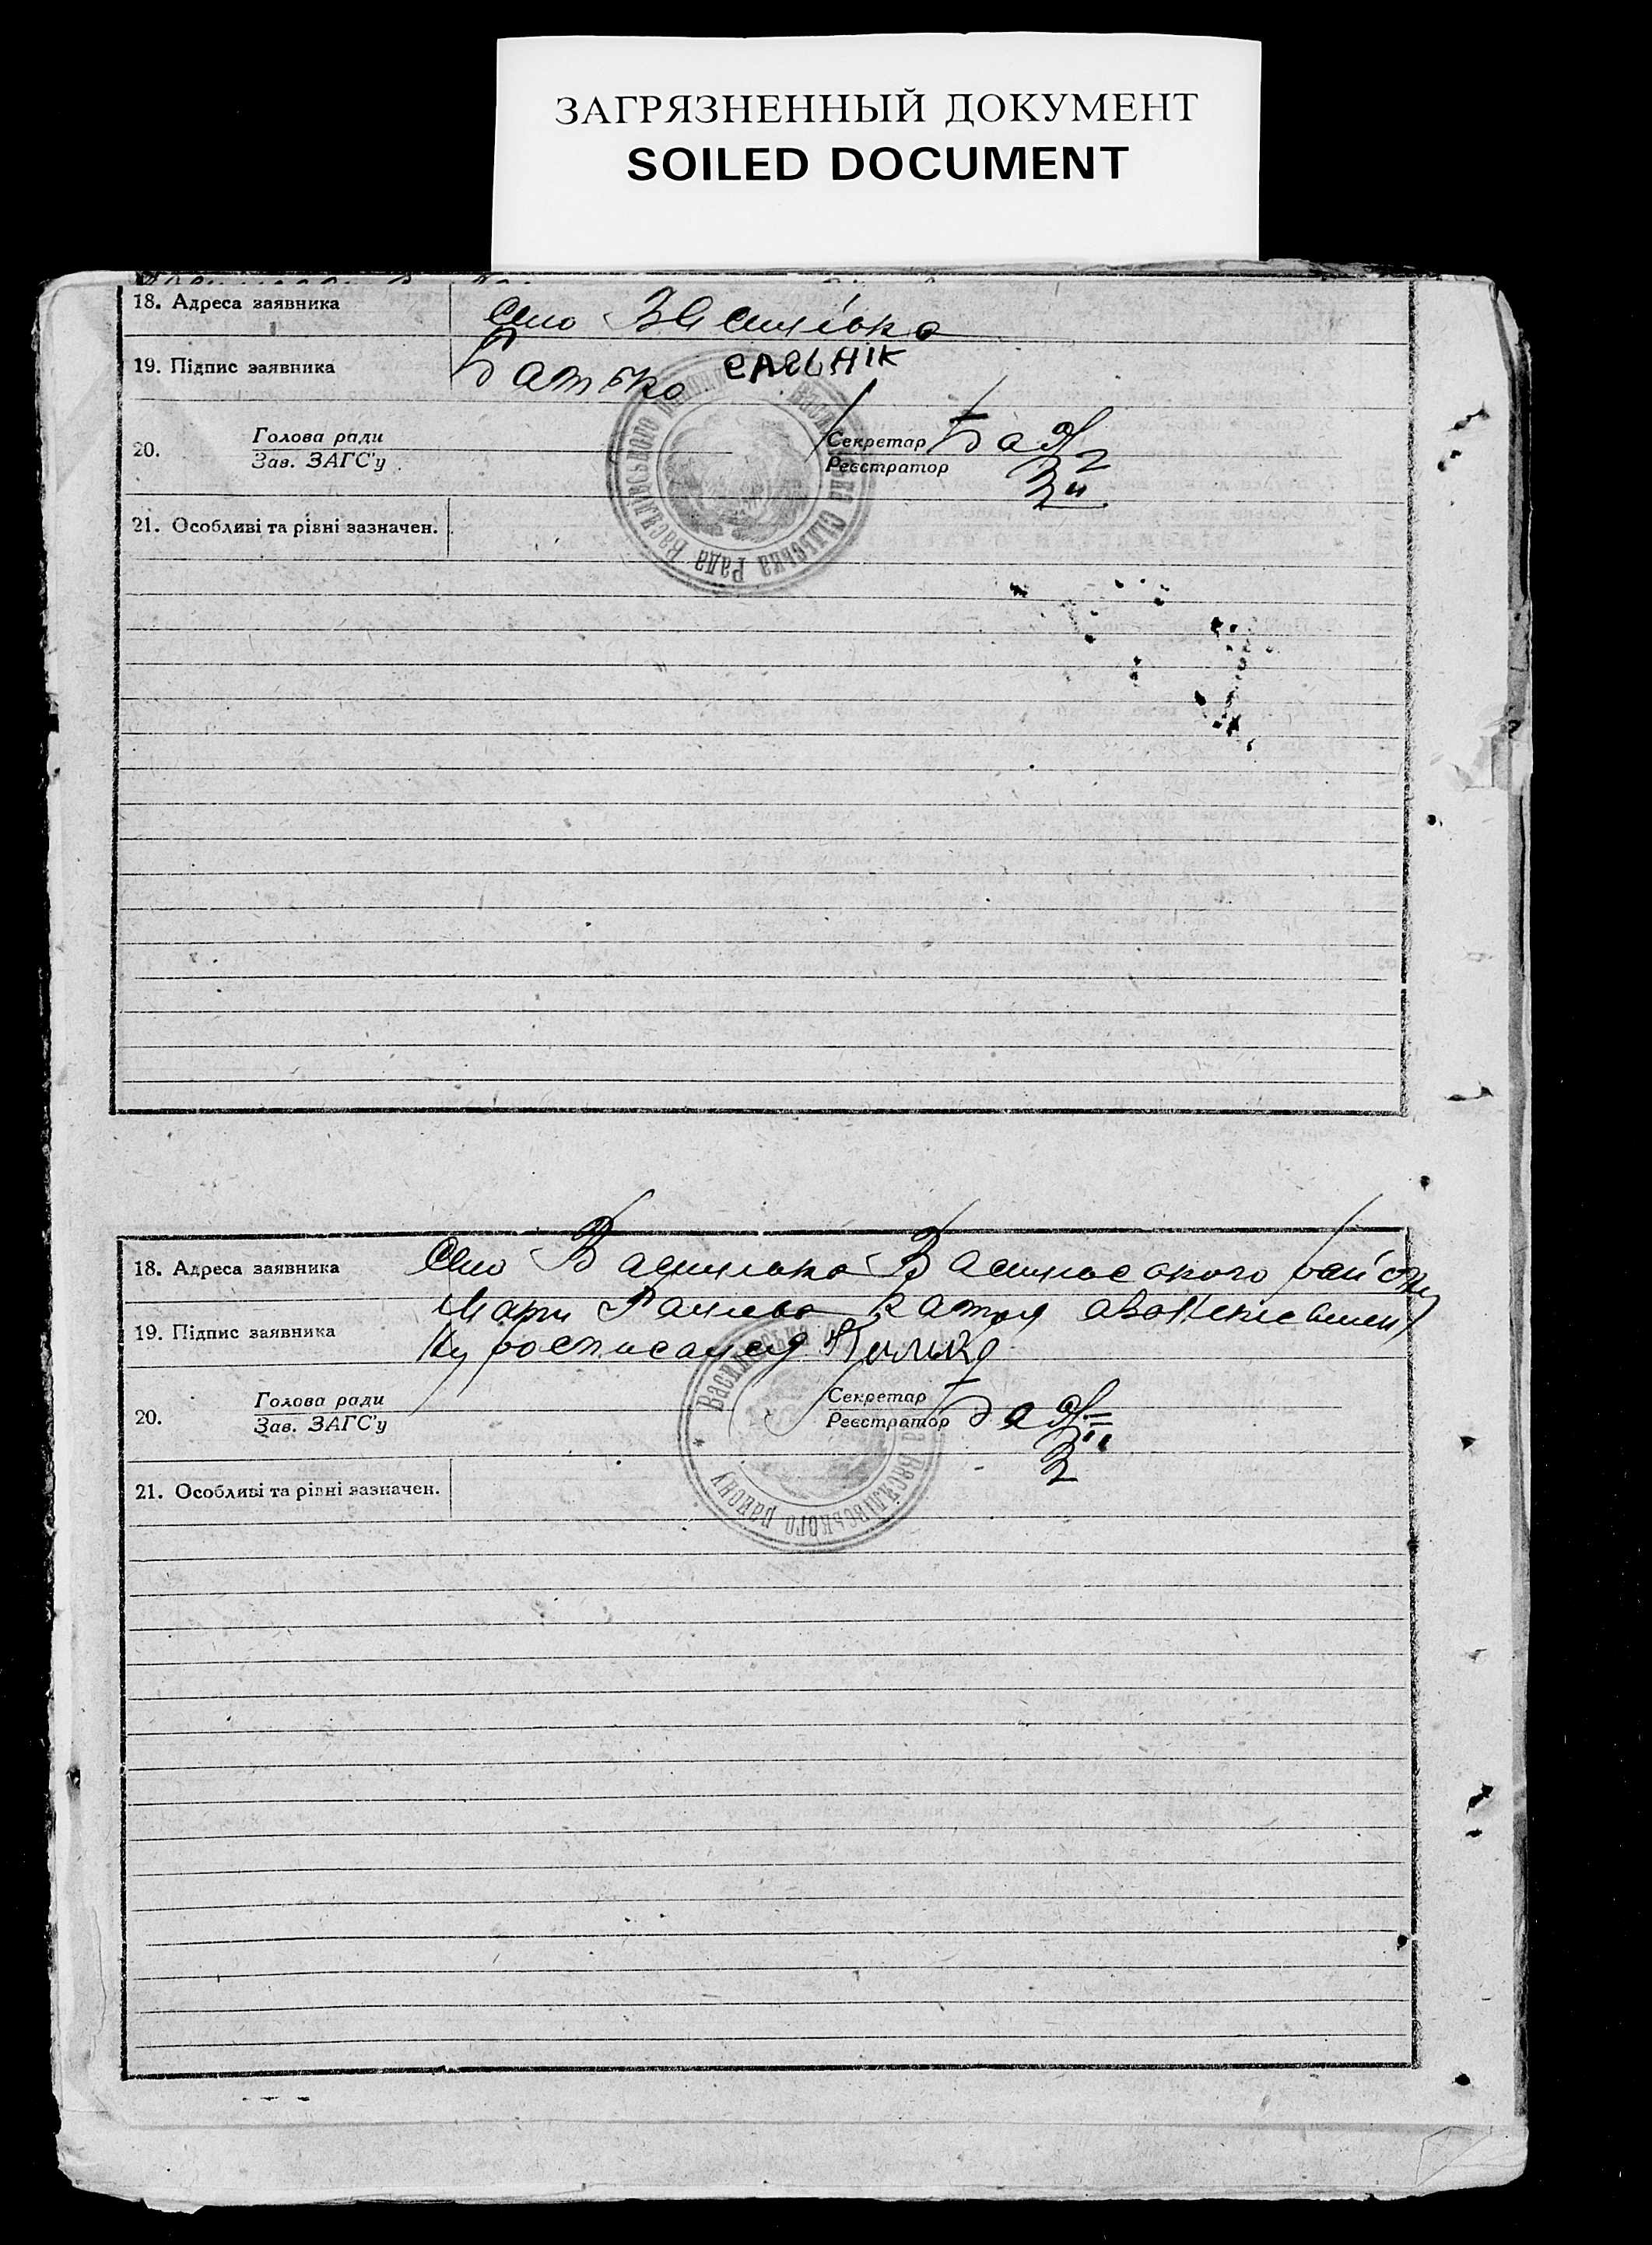 ЗАГРЯЗНЕННЫЙ ДОКУМЕНТ
SOILED DOCUMENT
18. Адреса заявника
село Василівка
19. Підпис заявника
Батько САЛЬНІК
20. Голова ради
Зав. ЗАГС'у
Секретар
Реєстратор
21. Особливі та рівні зазначен.
Василівська Сільська Рада Василівського
18. Адреса заявника
село Василівка Василівського району
19. Підпис заявника
Мати
20. Голова ради
Зав. ЗАГС'у
Секретар
Реєстратор
21. Особливі та рівні зазначен.
Василівська Василівського району